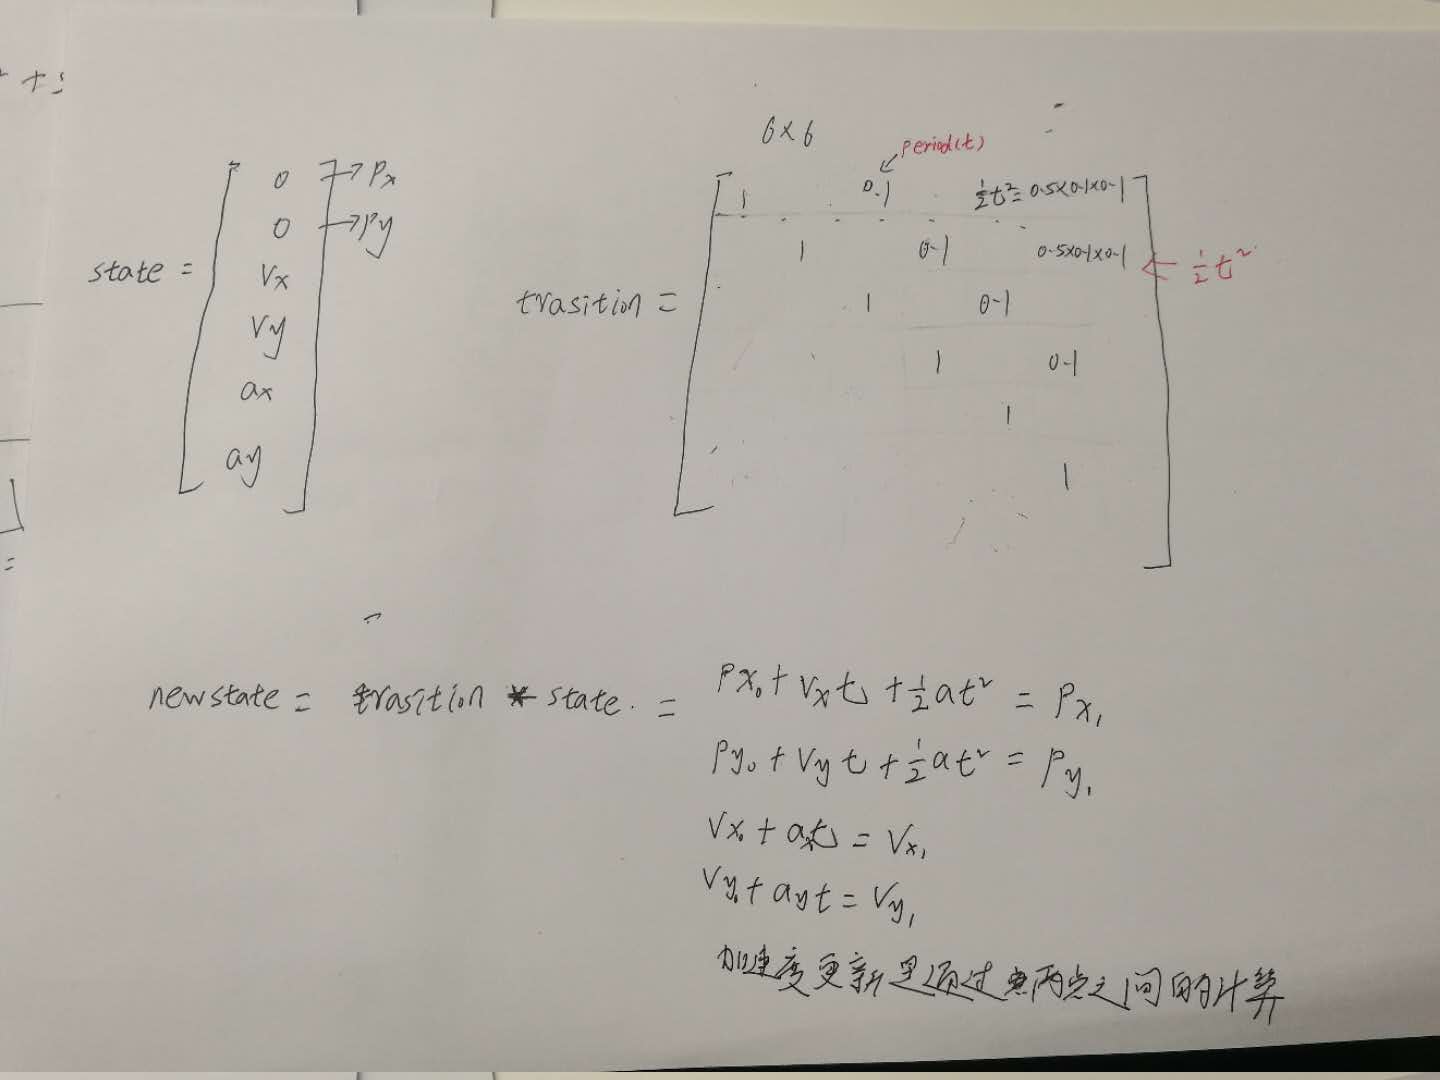 ² +
6×6
Period(t)
state = [ 0 → Px
0 → Py
Vx
Vy
ax
ay ]
trasition = [ 1 0.1 ½t²= 0.5×0.1×0.1
1 0.1 0.5×0.1×0.1 ← ½t²
1 0.1
1 0.1
1
1 ]
=
newstate = trasition * state. = Px₀ + Vxt + ½at² = Px₁
Py₀ + Vyt + ½at² = Py₁
Vx₀ + axt = Vx₁
Vy₀ + ayt = Vy₁
加速度更新是通过两点之间的计算